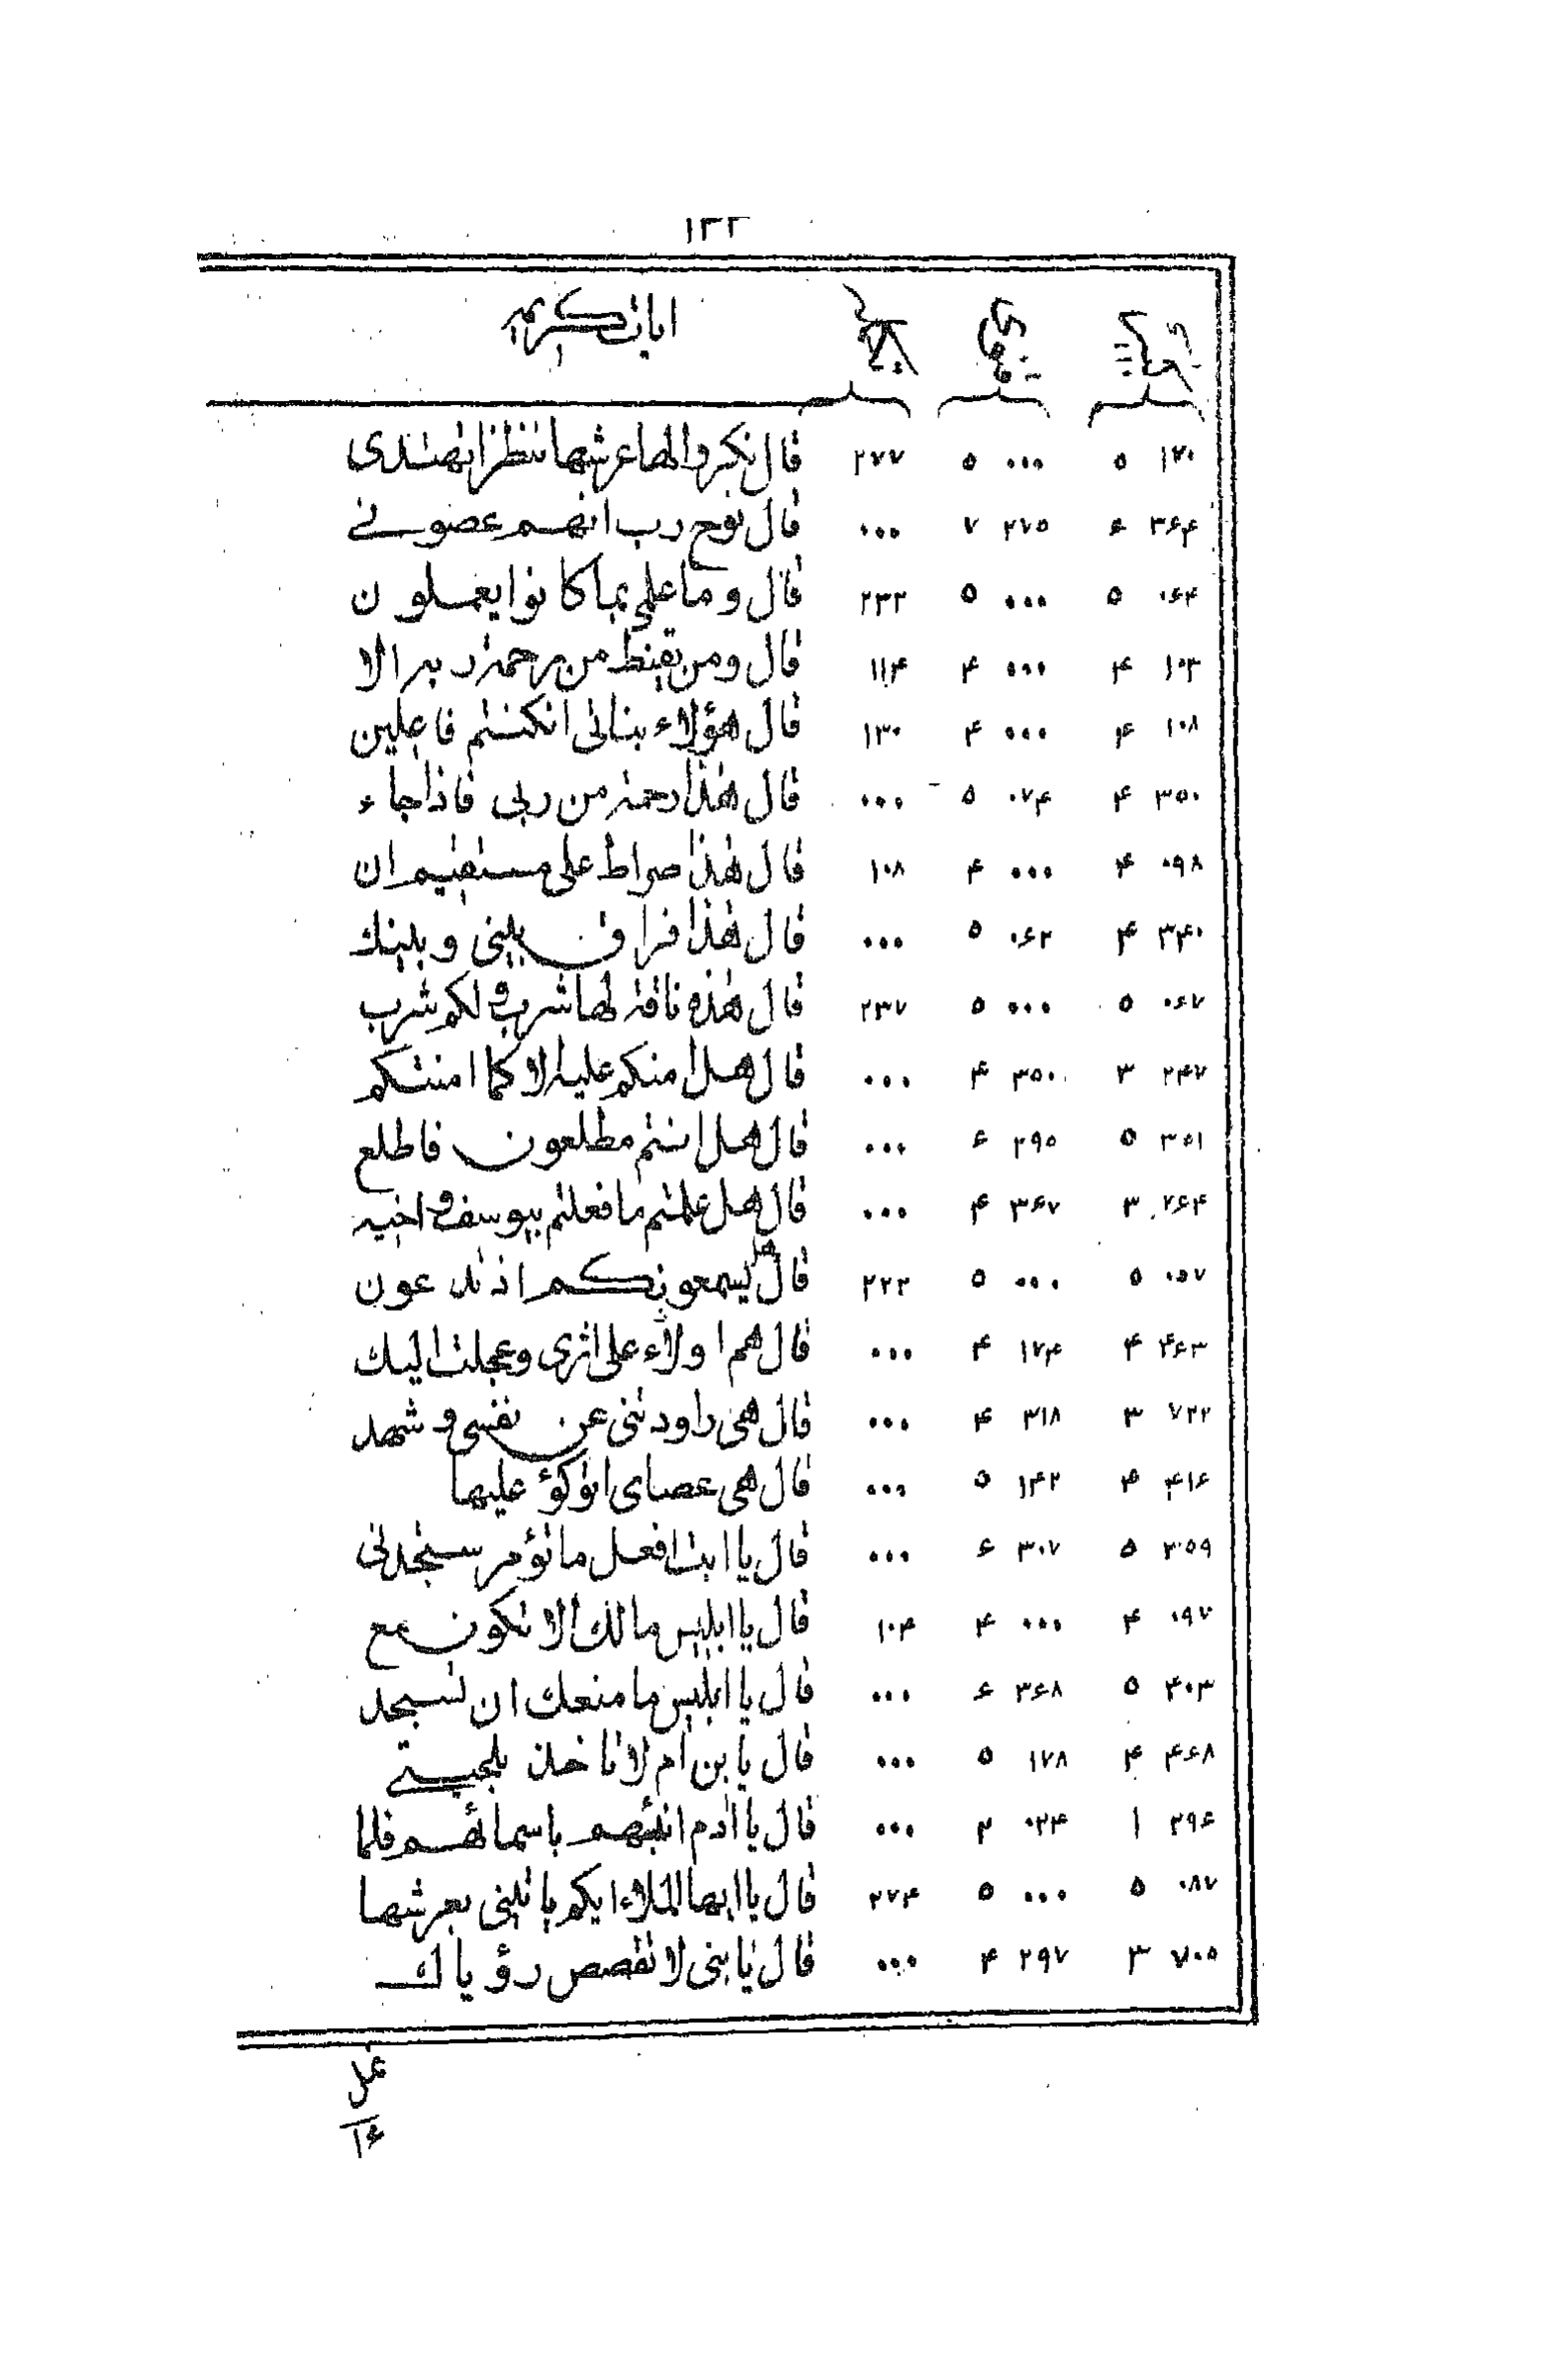 ١٣٢
ایات کریمه
١٧٠ ۵ ٠٠٠ ۵ ٢٧٧ قال نکروا لها عرشها ننظر اتهتدی
٣۶۴ ۶ ٢٧۵ ٧ ٠٠٠ قال نوح رب انهم عصونے
٠۶۴ ۵ ٠٠٠ ۵ ٢٣٣ قال و ما علمی بما کانوا یعملون
١٠٣ ۴ ٠٠٠ ۴ ١١۴ قال و من یقنط من رحمة ربه الا
١٠٨ ۴ ٠٠٠ ۴ ١٣٠ قال هؤلاء بناتی ان کنتم فاعلین
٣۵٠ ۴ ٠٧۴ ۵ ٠٠٠ قال هذا رحمة من ربی فاذا جاء
٠٩٨ ۴ ٠٠٠ ۴ ١٠٨ قال هذا صراط علی مستقیم ان
٣۴٠ ۴ ٠۶٢ ۵ ٠٠٠ قال هذا فراق بینی و بینك
٠۶٧ ۵ ٠٠٠ ۵ ٢٣٧ قال هذه ناقة لها شرب و لکم شرب
٢۴٧ ٣ ٣۵٠ ۴ ٠٠٠ قال هل امنکم علیه الا کما امنتکم
٣۵١ ۵ ٢٩۵ ۶ ٠٠٠ قال هل انتم مطلعون فاطلع
٧۶۴ ٣ ٣۶٧ ۴ ٠٠٠ قال هل علمتم ما فعلتم بیوسف و اخیه
٠۵٧ ۵ ٠٠٠ ۵ ٢٢٣ قال هل یسمعونکم اذ تدعون
۴۶٣ ۴ ١٧۴ ۴ ٠٠٠ قال هم اولاء علی اثری و عجلت الیك
٧٢٢ ٣ ٣١٨ ۴ ٠٠٠ قال هی راودتنی عن نفسی و شهد
۴١۶ ۴ ١۴٢ ۵ ٠٠٠ قال هی عصای اتوکؤ علیها
٣۵٩ ۵ ٣٠٧ ۶ ٠٠٠ قال یا ابت افعل ما تؤمر ستجدنی
٠٩٧ ۴ ٠٠٠ ۴ ١٠۴ قال یا ابلیس مالك الا تکون مع
۴٠٣ ۵ ٣۶٨ ۶ ٠٠٠ قال یا ابلیس ما منعك ان تسجد
۴۶٨ ۴ ١٧٨ ۵ ٠٠٠ قال یابن ام لا تاخذ بلحیتے
٢٩۶ ١ ٠٢۴ ٢ ٠٠٠ قال یا ادم انبئهم باسمائهم فلما
٠٨٧ ۵ ٠٠٠ ۵ ٢٧۴ قال یا ایها الملاء ایکم یاتینی بعرشها
٧٠۵ ٣ ٢٩٧ ۴ ٠٠٠ قال یا بنی لا تقصص رؤیاك
١۶